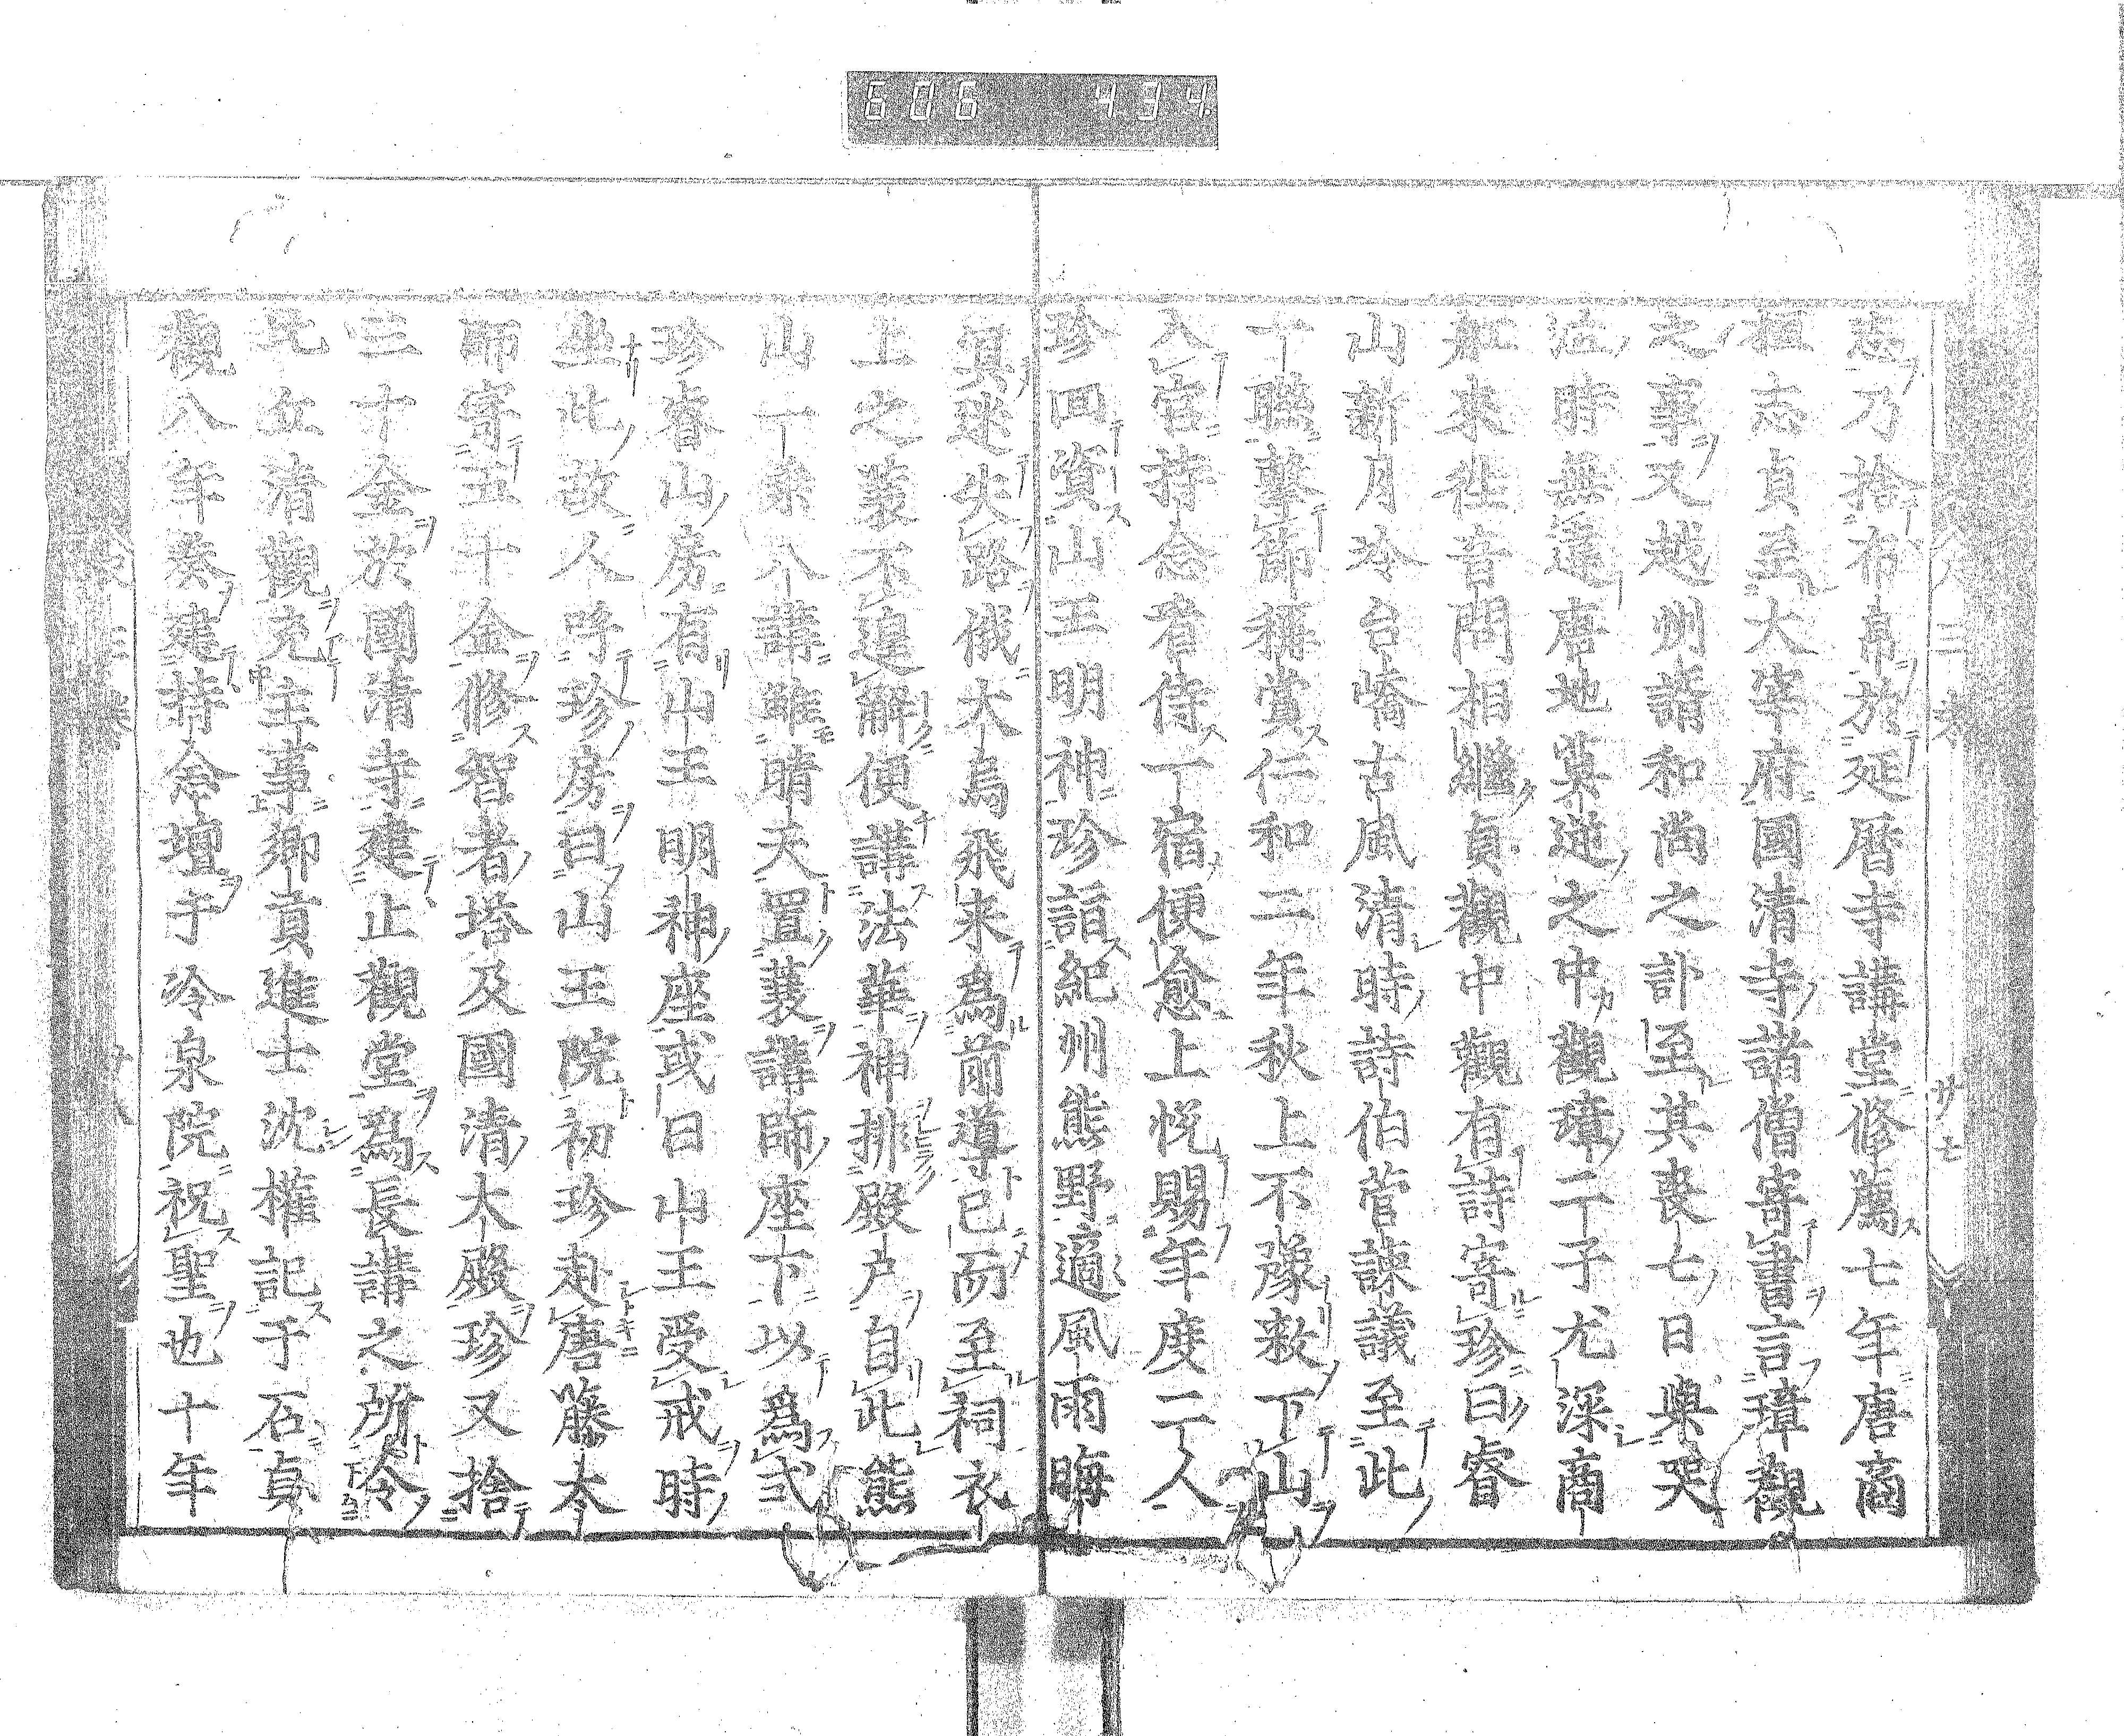 606 434
志乃捨布帛於延曆寺講堂修薦七年唐商
桓志貞至大宰府國清寺諸僧寄書言璋觀
之事又越州諝和尚之訃至其喪七日與哭
泣時無違唐地莫逆之中觀璋二子尤深商
舩來徃音問相繼貞觀中觀有詩寄珍曰睿
山新月冷台嶠古風清時詩伯菅諫議至此
十聯擊節稱賞仁和二年秋上不豫敕下山
入宿持念者侍一宿便愈上悅賜年度二人
珍回資山王明神珍詣紀州熊野適風雨晦
冥迷失路俄大烏飛來爲前導已而至祠衣
上之蓑不遑解便講法華神排殿戶自此熊
山一乘八講雖晴天置蓑講師座下以爲式
珍睿山房有山王明神座或曰山王受戒時
坐此故人呼珍房曰山王院初珍赴唐藤太
師寄五十金修智者塔及國清大殿珍又捨
三十金於國清寺建止觀堂爲長講之所令
元立清觀充主事鄉貢進士沈權記于石貞
觀八年奏建持念壇于冷泉院祝聖也十年
三卷
廿七